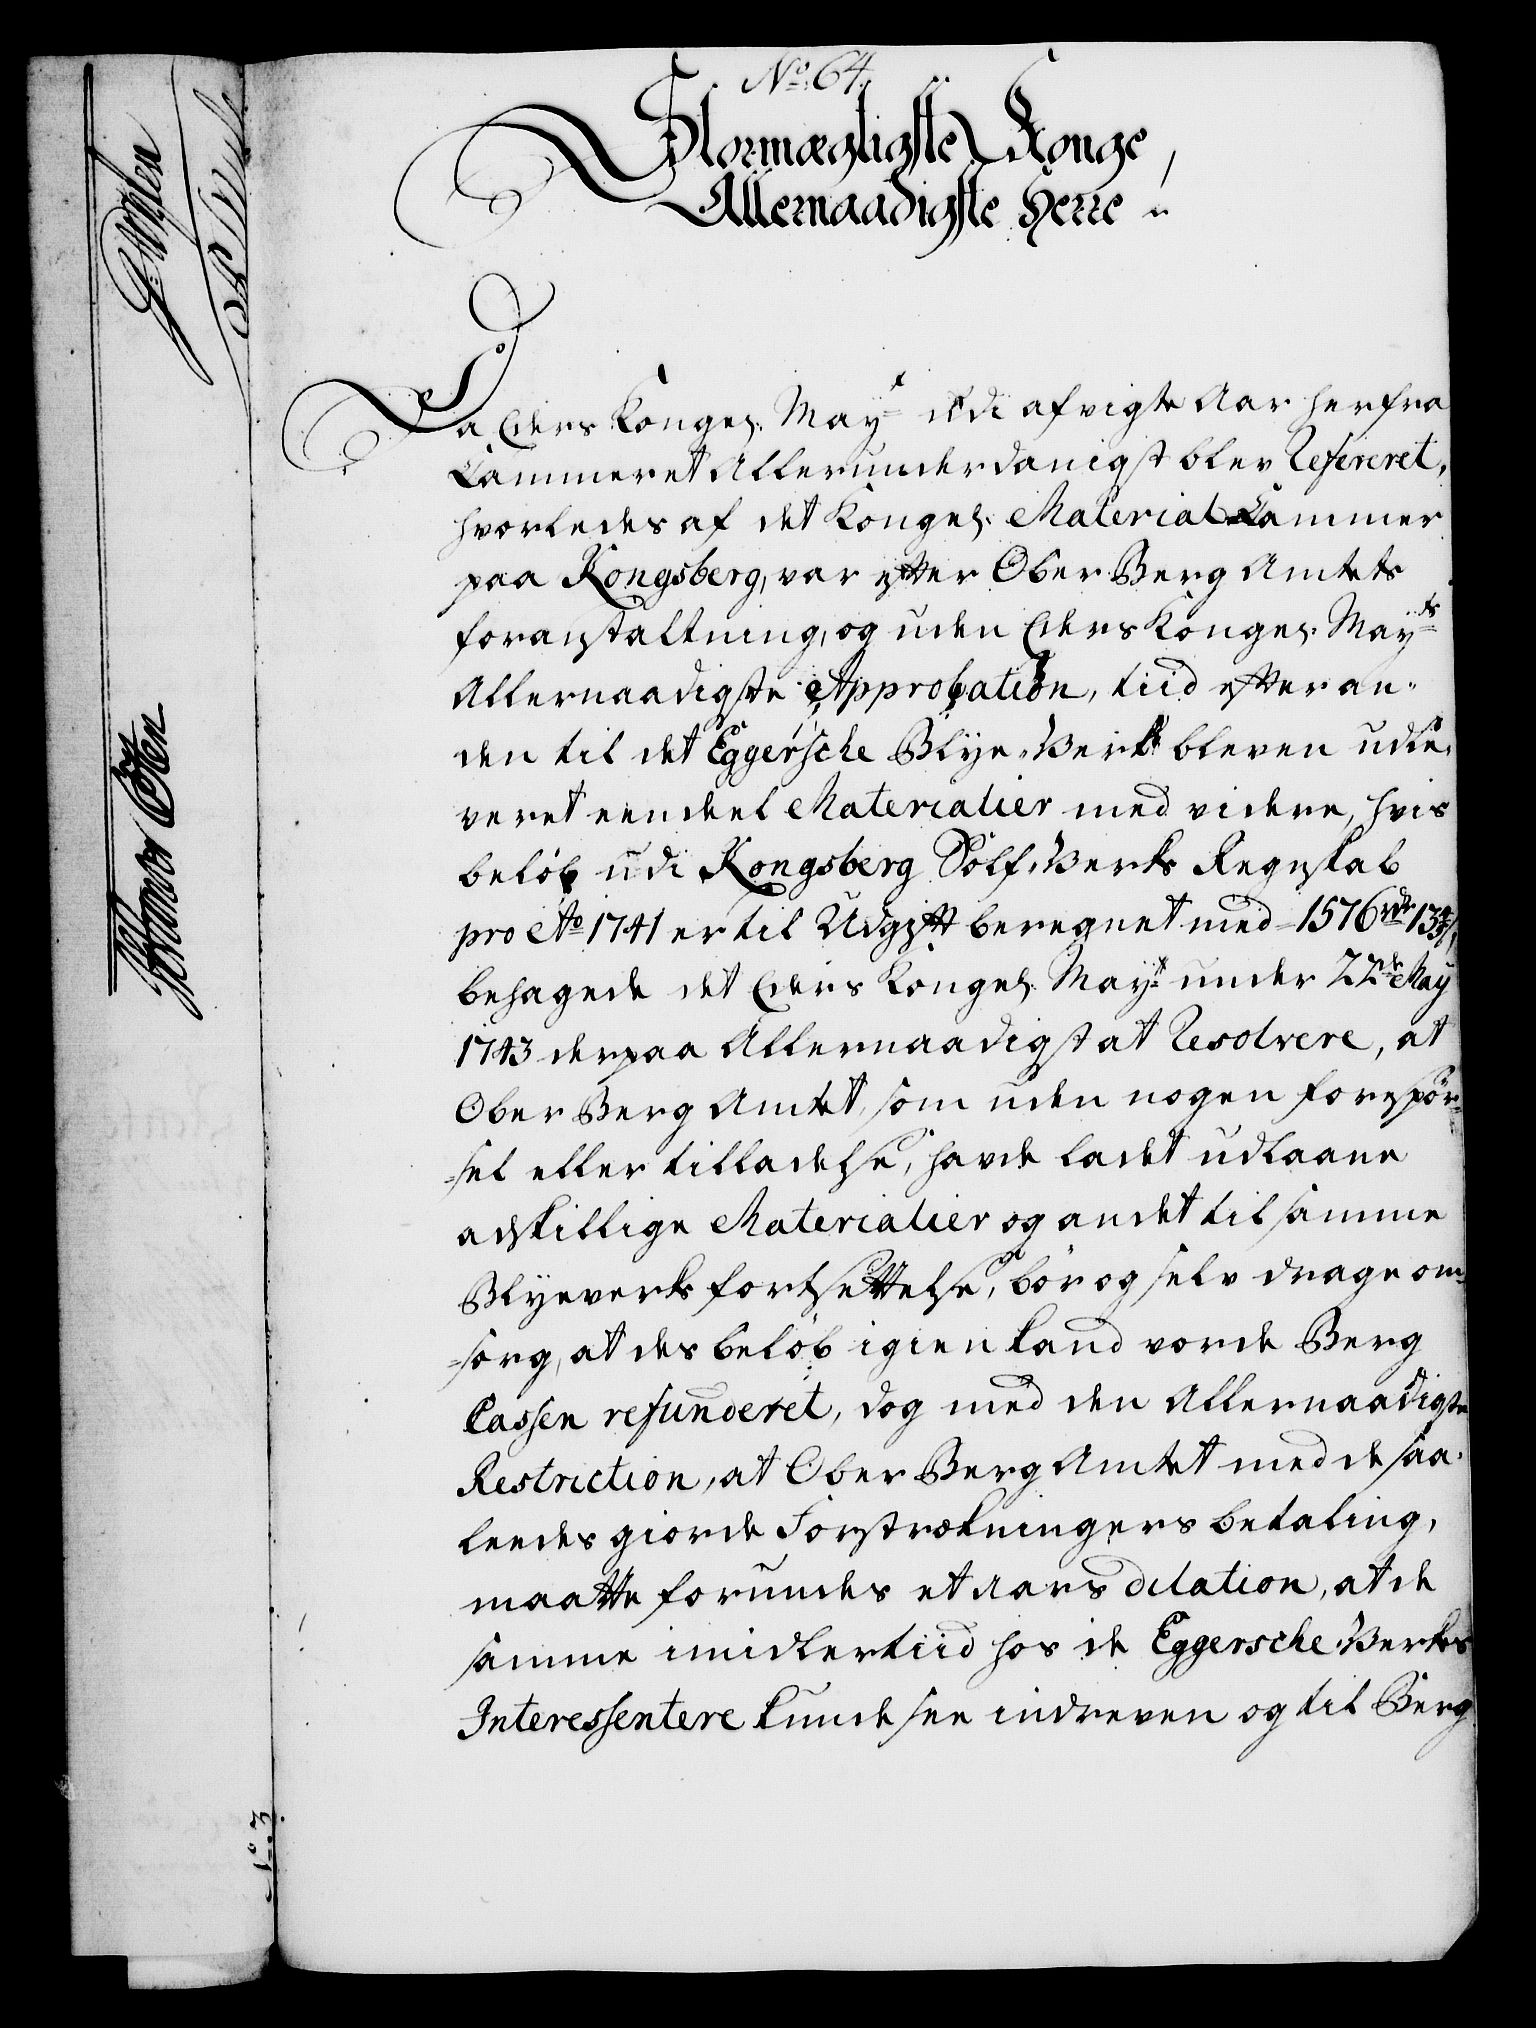 No. 64.
Stormægtigste Konge,
Allernaadigste Herre
Da Eders Kongel. Mayt udi afvigte Aar herfra
Cammeret Allerunderdanigst blev Refereret,
hvorledes af det Kongel. Material Cammer
paa Kongsberg, var efter Ober Berg Amtets
foranstaltning, og uden Eders Kongel. Mayts
Allernaadigste Approbation, tiid efter an-
den til det Eggersche Blye-Verk bleven udle-
veret eendeel Materialier med videre, hvis
beløb udi Kongsberg Sølf-Verks Regnskab
pro Ao 1741 er til Udgift beregnet med 1576 rdr
behagede det Eders Kongel. Mayt under 22de May
1743 derpaa Allernaadigst at Resolvere, at
Ober Berg Amtet, som uden nogen forespør-
-sel eller tilladelse, havde ladet udlaane
adskillige Materialier og andet til samme
Blyeverks fortsettelse, bør og selv drage om-
-sorg, at des beløb igien kand vorde Berg
Cassen refunderet, dog med den Allernaadigste
Restriction, at Ober Berg Amtet med de saa-
leedes giorde Forstrækningers betaling,
maatte forundes et aars dilation, at de
samme imidlertiid hos de Eggersche Verkes
Interessentere kunde see indreven og til Berg
No. 3